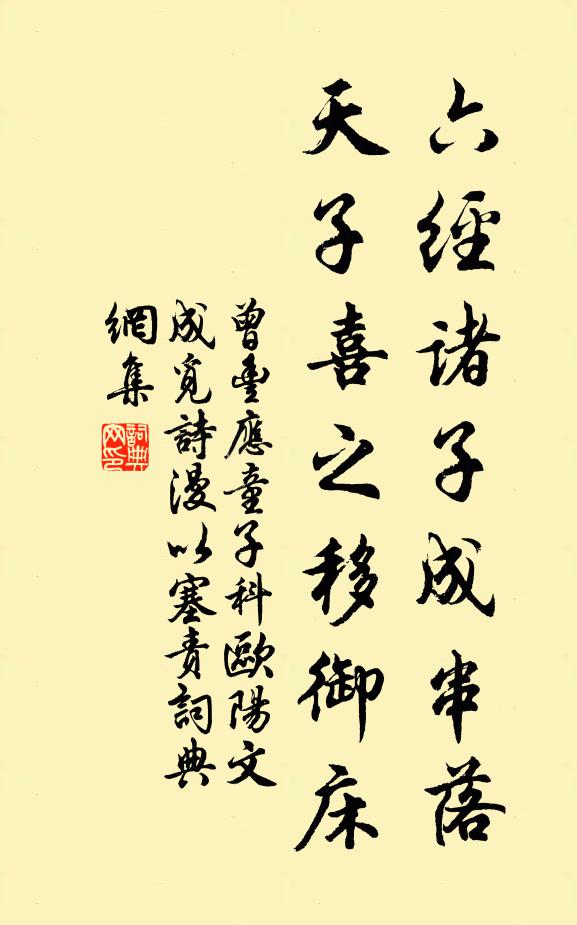 六經諸子成串落
天子喜之移御床
曾豊應童子科歐陽文
成覓詩漫以塞責詞典
網集
詞典网印